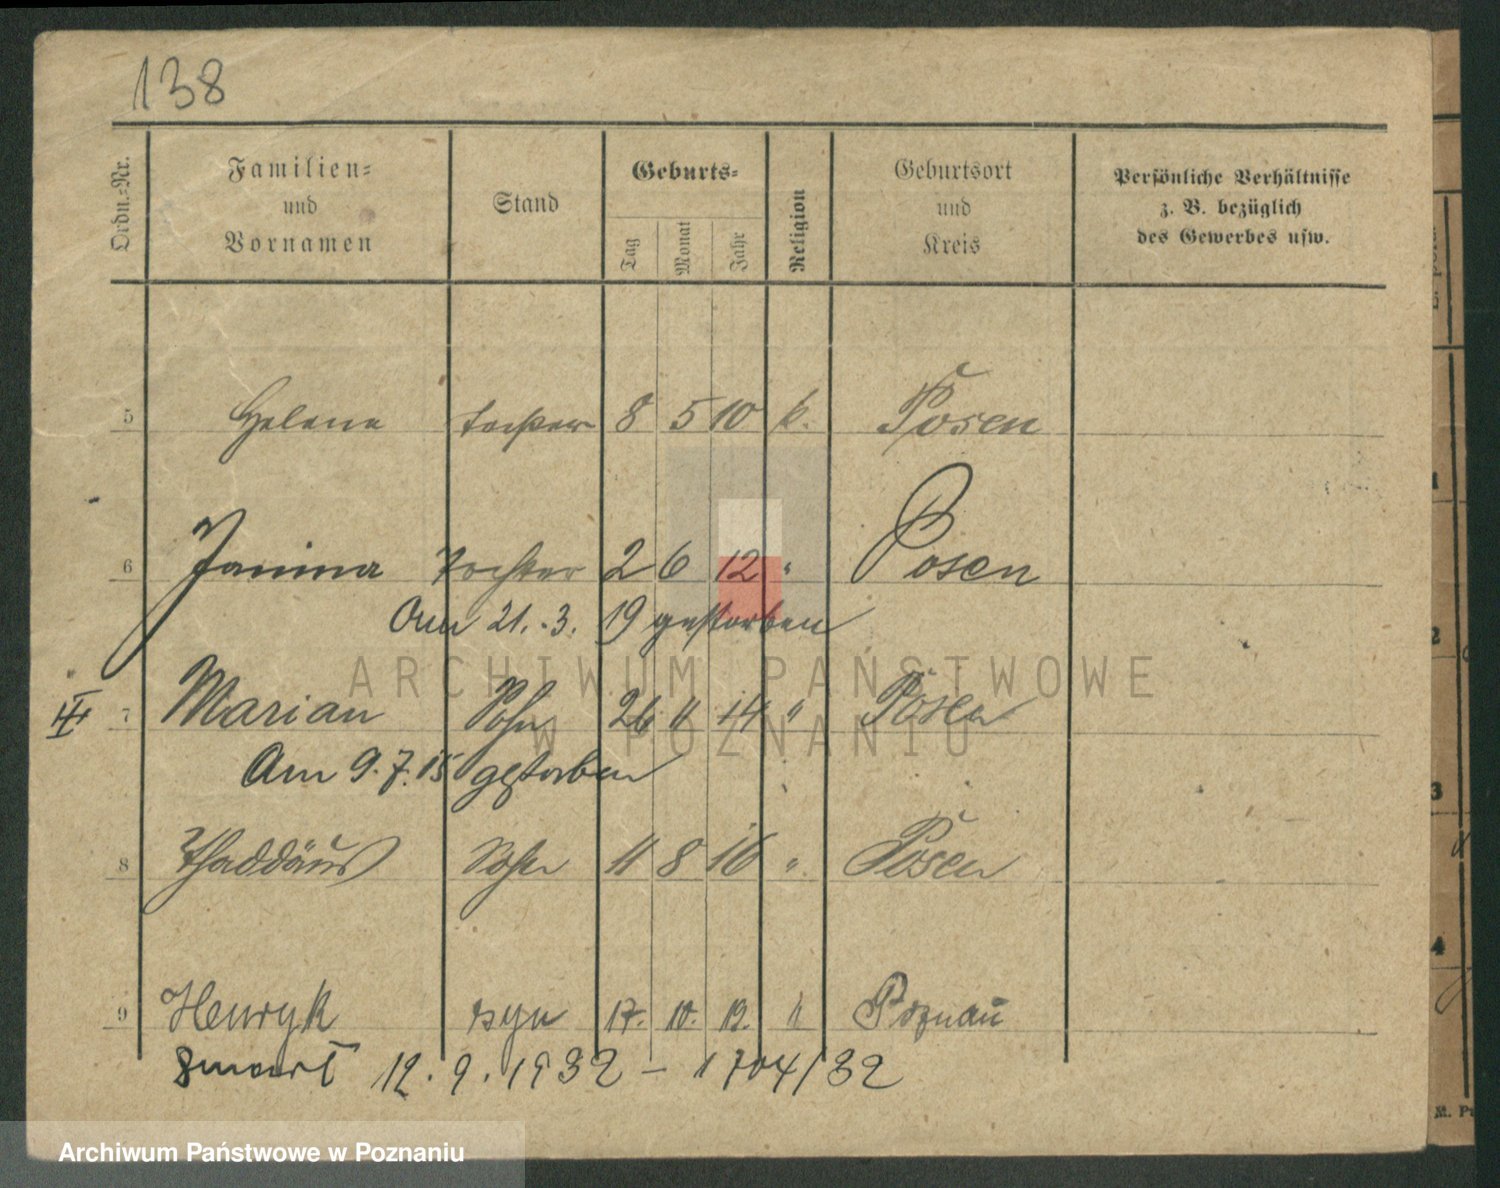 138
Ordn.-Nr. Familien- und Vornamen Stand Geburts- Tag Monat Jahr Religion Geburtsort und Kreis Persönliche Verhältnisse z. B. bezüglich des Gewerbes usw.
5 Helene Tochter 8 5 10 k. Posen
6 Janina Tochter 2 6 12 " Posen
Am 21.-3. 19 gestorben
III 7 Marian Sohn 26 11 14 " Posen
Am 9.7.15 gestorben
8 Thaddäus Sohn 11 8 16 " Posen
9 Henryk syn 17. 10. 19. " Poznań
Zmarł 12.9.1932 – 1704/32
ARCHIWUM PAŃSTWOWE
W POZNANIU
Archiwum Państwowe w Poznaniu
1
2
3
4